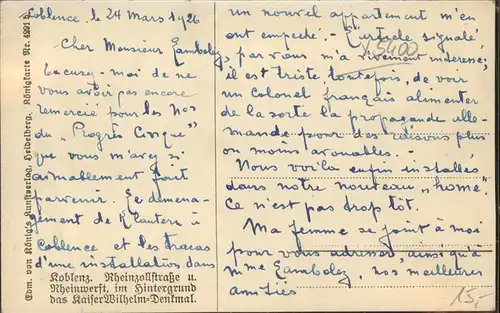 Coblence, le 24 Mars 1926
Cher Monsieur Zamboley
Excusez-moi de ne
vous avoir pas encore
remercié pour les Nos
du „Progrès Civique"
que vous m'avez si
aimablement fait
parvenir. Le demena-
gement de Klautern à
Coblence et les tracas
d'une installation dans
Koblenz. Rheinzollstraße u.
Rheinwerft, im Hintergrund
das Kaiser Wilhelm-Denkmal.
Edm. von König's Kunstverlag, Heidelberg. Königskarte Nr.
un nouvel appartement m'en
ont empêché. - L'article signalé
par vous m'a vivement intéressé;
x5400
il est triste, toutefois, de voir
un colonel français alimenter
de la sorte la propagande alle-
mande pour des raisons plus
ou moins avouables. -
Nous voilà enfin installés
dans notre nouveau „home".
Ce n'est pas trop tôt.
Ma femme se joint à moi
pour vous adresser, ainsi qu'à
Mme Zamboley, nos meilleures
amitiés
15,-